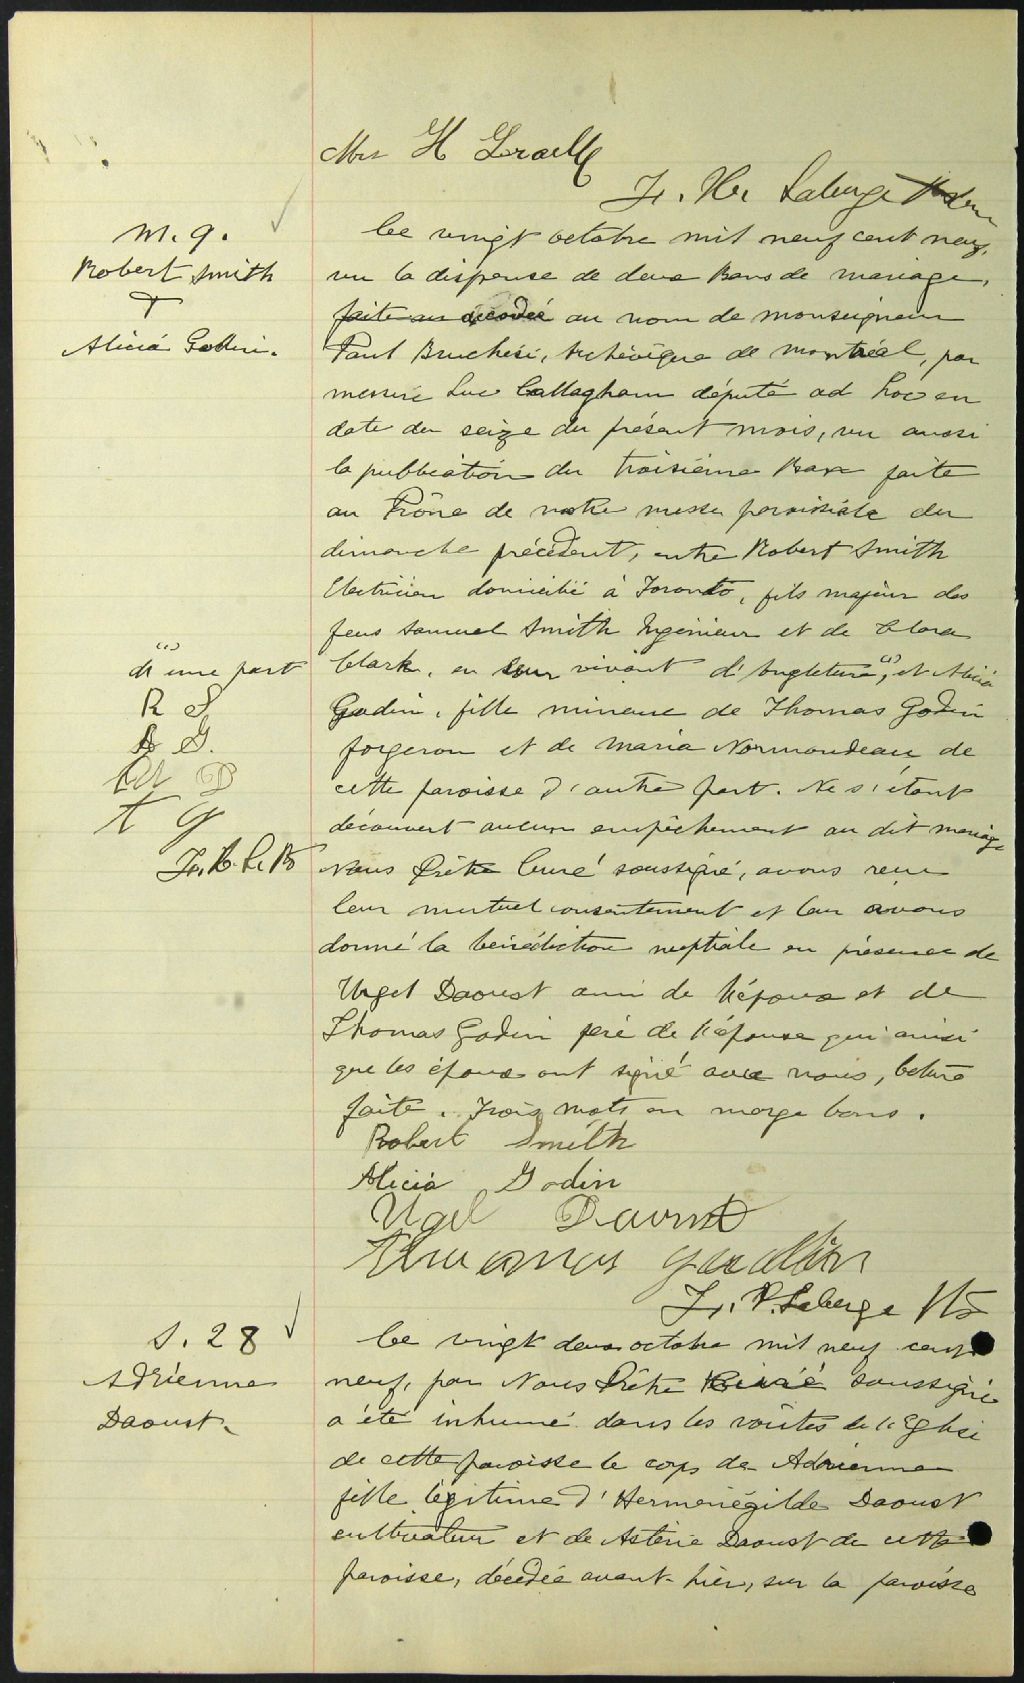 Mrs H
Laberge
M. 9.
Robert Smith
+
Alicia Godin.
Le vingt octobre mil neuf cent neuf,
vu la dispense de deux Bans de mariage,
faite au nom de monseigneur
Paul Bruchési, Archévêque de Montréal, par
messire Luc Callaghan député ad hoc en
date du seize du présent mois, vu aussi
la publication du troisième Ban faite
au Prône de notre messe paroissiale du
dimanche précédent, entre Robert Smith
Electricien domicilié à Toronto, fils majeur des
feus Samuel Smith Ingénieur et de Clara
Clark, en leur vivant d'Angleterre, (1) et Alicia
(1)
d'une part
R S
A G.
U D
T G
Godin, fille mineure de Thomas Godin
forgeron et de Maria Normandeau de
cette paroisse d'autre part. Ne s'étant
découvert aucun empêchement au dit mariage
Nous Prêtre Curé soussigné, avons reçu
leur mutuel consentement et leur avons
donné la bénédiction nuptiale en présence de
Urgel Daoust ami de l'époux et de
Thomas Godin père de l'épouse qui ainsi
que les époux ont signé avec nous, lecture
faite. Trois mots en marge bons.
Robert Smith
Alicia Godin
Ugel Daoust
Laberge Ptre
S. 28
Adrienne
Daoust.
Le vingt deux octobre mil neuf cent
neuf, par Nous Prêtre Curé soussigné
a été inhumé dans les voûtes de l'Eglise
de cette paroisse le corps de Adrienne
fille légitime d'Herménégilde Daoust
cultivateur et de Astérie Daoust de cette
paroisse, décédée avant-hier, sur la paroisse